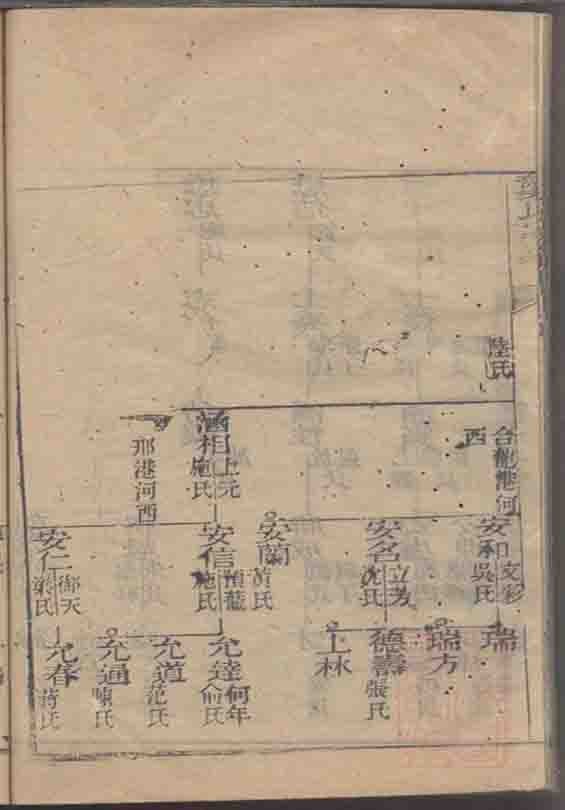 陸氏
合龍港河
西
涵相上元
施氏
邢港河西
安和文彩
吳氏
安名立芳
沈氏
安蘭
黃氏
安信
施氏
安仁御天
梁氏
瑞
瑞方
德壽
張氏
上林
允達何年
俞氏
允道
范氏
允通
陳氏
允春
蔣氏